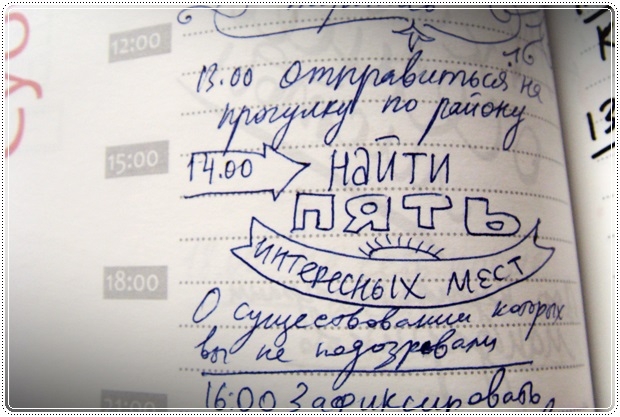 12:00
16
13.00 Отправиться на
прогулку по району
15:00
14.00 НАЙТИ
ПЯТЬ
ИНТЕРЕСНЫХ МЕСТ
18:00
О существовании которых
вы не подозревали
21:00
16:00 Зафиксировать